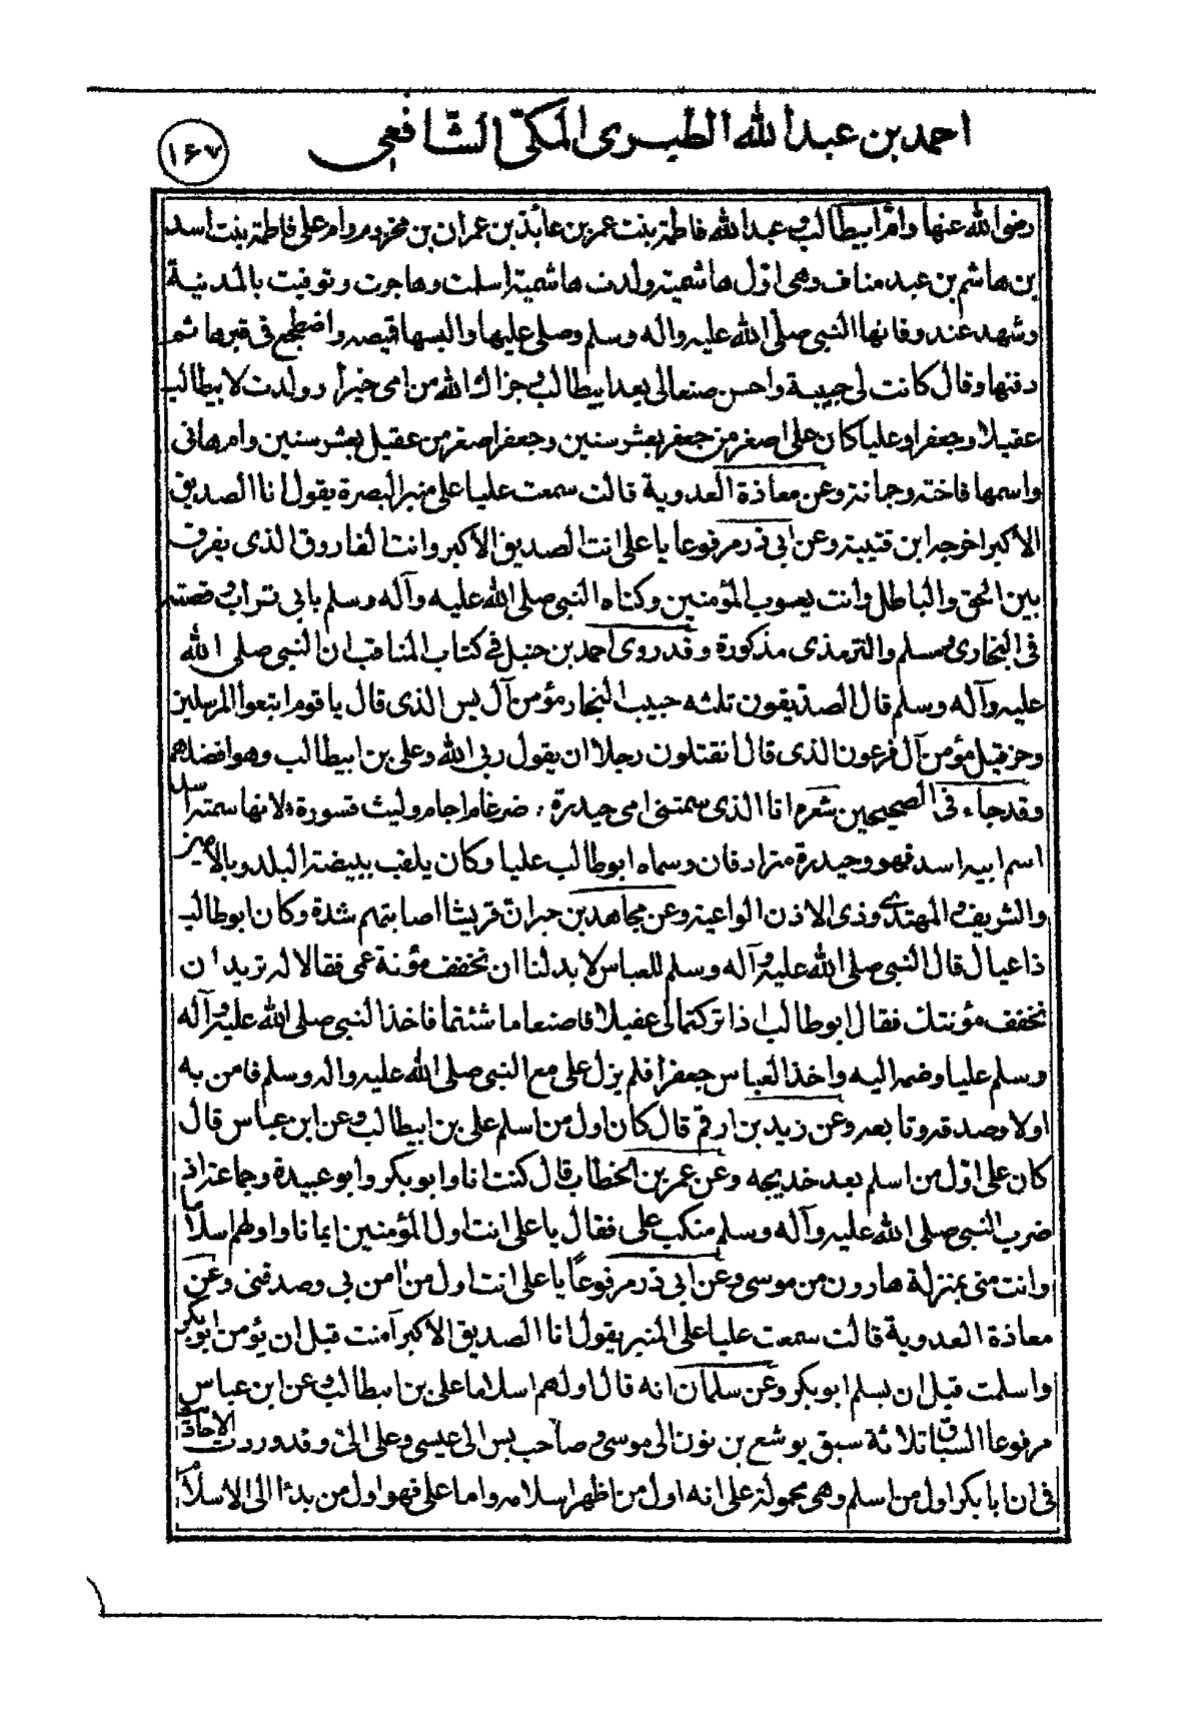 احمد بن عبد الله الطبرى المكى الشافعى
١٦٧
رضى الله عنها وام ابيطالب وعبد الله فاطمة بنت عمر بن عائذ بن عمران بن مخزوم وام على فاطمة بنت اسد
بن هاشم بن عبد مناف وهى اول هاشمية ولدت هاشميا اسلمت وهاجرت وتوفيت بالمدنية
وشهد عند وفاتها النبى صلى الله عليه واله وسلم وصلى عليها والبسها قميصه واضطجع فى قبرها ثم
دفنها وقال كانت لى حبيبة واحسن صنعا لى بعد ابيطالب جزاك الله من امى خيرا وولدت لابيطالب
عقيلا وجعفرا وعليا كان على اصغر من جعفر بعشر سنين وجعفر اصغر من عقيل بعشر سنين وام هانى
واسمها فاخته وجمانة وعن معاذة العدوية قالت سمعت عليا على منبر البصرة يقول انا الصديق
الاكبر اخرجه ابن قتيبة وعن ابى ذر مرفوعا يا على انت الصديق الاكبر وانت الفاروق الذى يفرق
بين الحق والباطل وانت يعسوب المؤمنين وكناه النبى صلى الله عليه وآله وسلم بابى تراب وقصته
فى البخارى ومسلم والترمذى مذكورة وقد روى احمد بن حنبل فى كتاب المناقب ان النبى صلى الله
عليه وآله وسلم قال الصديقون ثلثه حبيب النجار مؤمن آل يس الذى قال يا قوم اتبعوا المرسلين
وحزقيل مؤمن آل فرعون الذى قال اتقتلون رجلا ان يقول ربى الله وعلى بن ابيطالب وهو افضلهم
وقد جاء فى الصحيحين شعره انا الذى سمتنى امى حيدرة ، ضرغام اجام وليث قسورة لانها سمته اسد
اسم ابيه اسد فهو وحيدرة مترادفان وسماه ابو طالب عليا وكان يلقب ببيضة البلد وبالامين
والشريف والمهتدى وذى الاذن الواعية وعن مجاهد بن جبر ان قريشا اصابتهم شدة وكان ابو طالب
ذا عيال قال النبى صلى الله عليه وآله وسلم للعباس لابد لنا ان نخفف مؤنة عمى فقالا له نريد ان
نخفف مؤنتك فقال ابو طالب اذا تركتما لى عقيلا فاصنعا ما شئتما فاخذ النبى صلى الله عليه وآله
وسلم عليا وضمه اليه واخذ العباس جعفرا فلم يزل على مع النبى صلى الله عليه واله وسلم فامن به
اولا وصدقه وتابعه وعن زيد بن ارقم قال كان اول من اسلم على بن ابيطالب وعن ابن عباس قال
كان على اول من اسلم بعد خديجه وعن عمر بن الخطاب قال كنت انا وابو بكر وابو عبيدة وجماعة اذ
ضرب النبى صلى الله عليه وآله وسلم منكب على فقال يا على انت اول المؤمنين ايمانا واولهم اسلاما
وانت منى بمنزلة هارون من موسى وعن ابى ذر مرفوعاً يا على انت اول من امن بى وصدقنى وعن
معاذة العدوية قالت سمعت عليا على المنبر يقول انا الصديق الاكبر آمنت قبل ان يؤمن ابو بكر
واسلمت قبل ان يسلم ابو بكر وعن سلمان انه قال اولهم اسلاما على بن ابيطالب عن ابن عباس
مرفوعا السباق ثلاثة سبق يوشع بن نون الى موسى وصاحب يس الى عيسى وعلى الىّ وقد وردت الاحاديث
فى ان ابا بكر اول من اسلم وهى محمولة على انه اول من اظهر اسلامه واما على فهو اول من بدء الى الاسلام